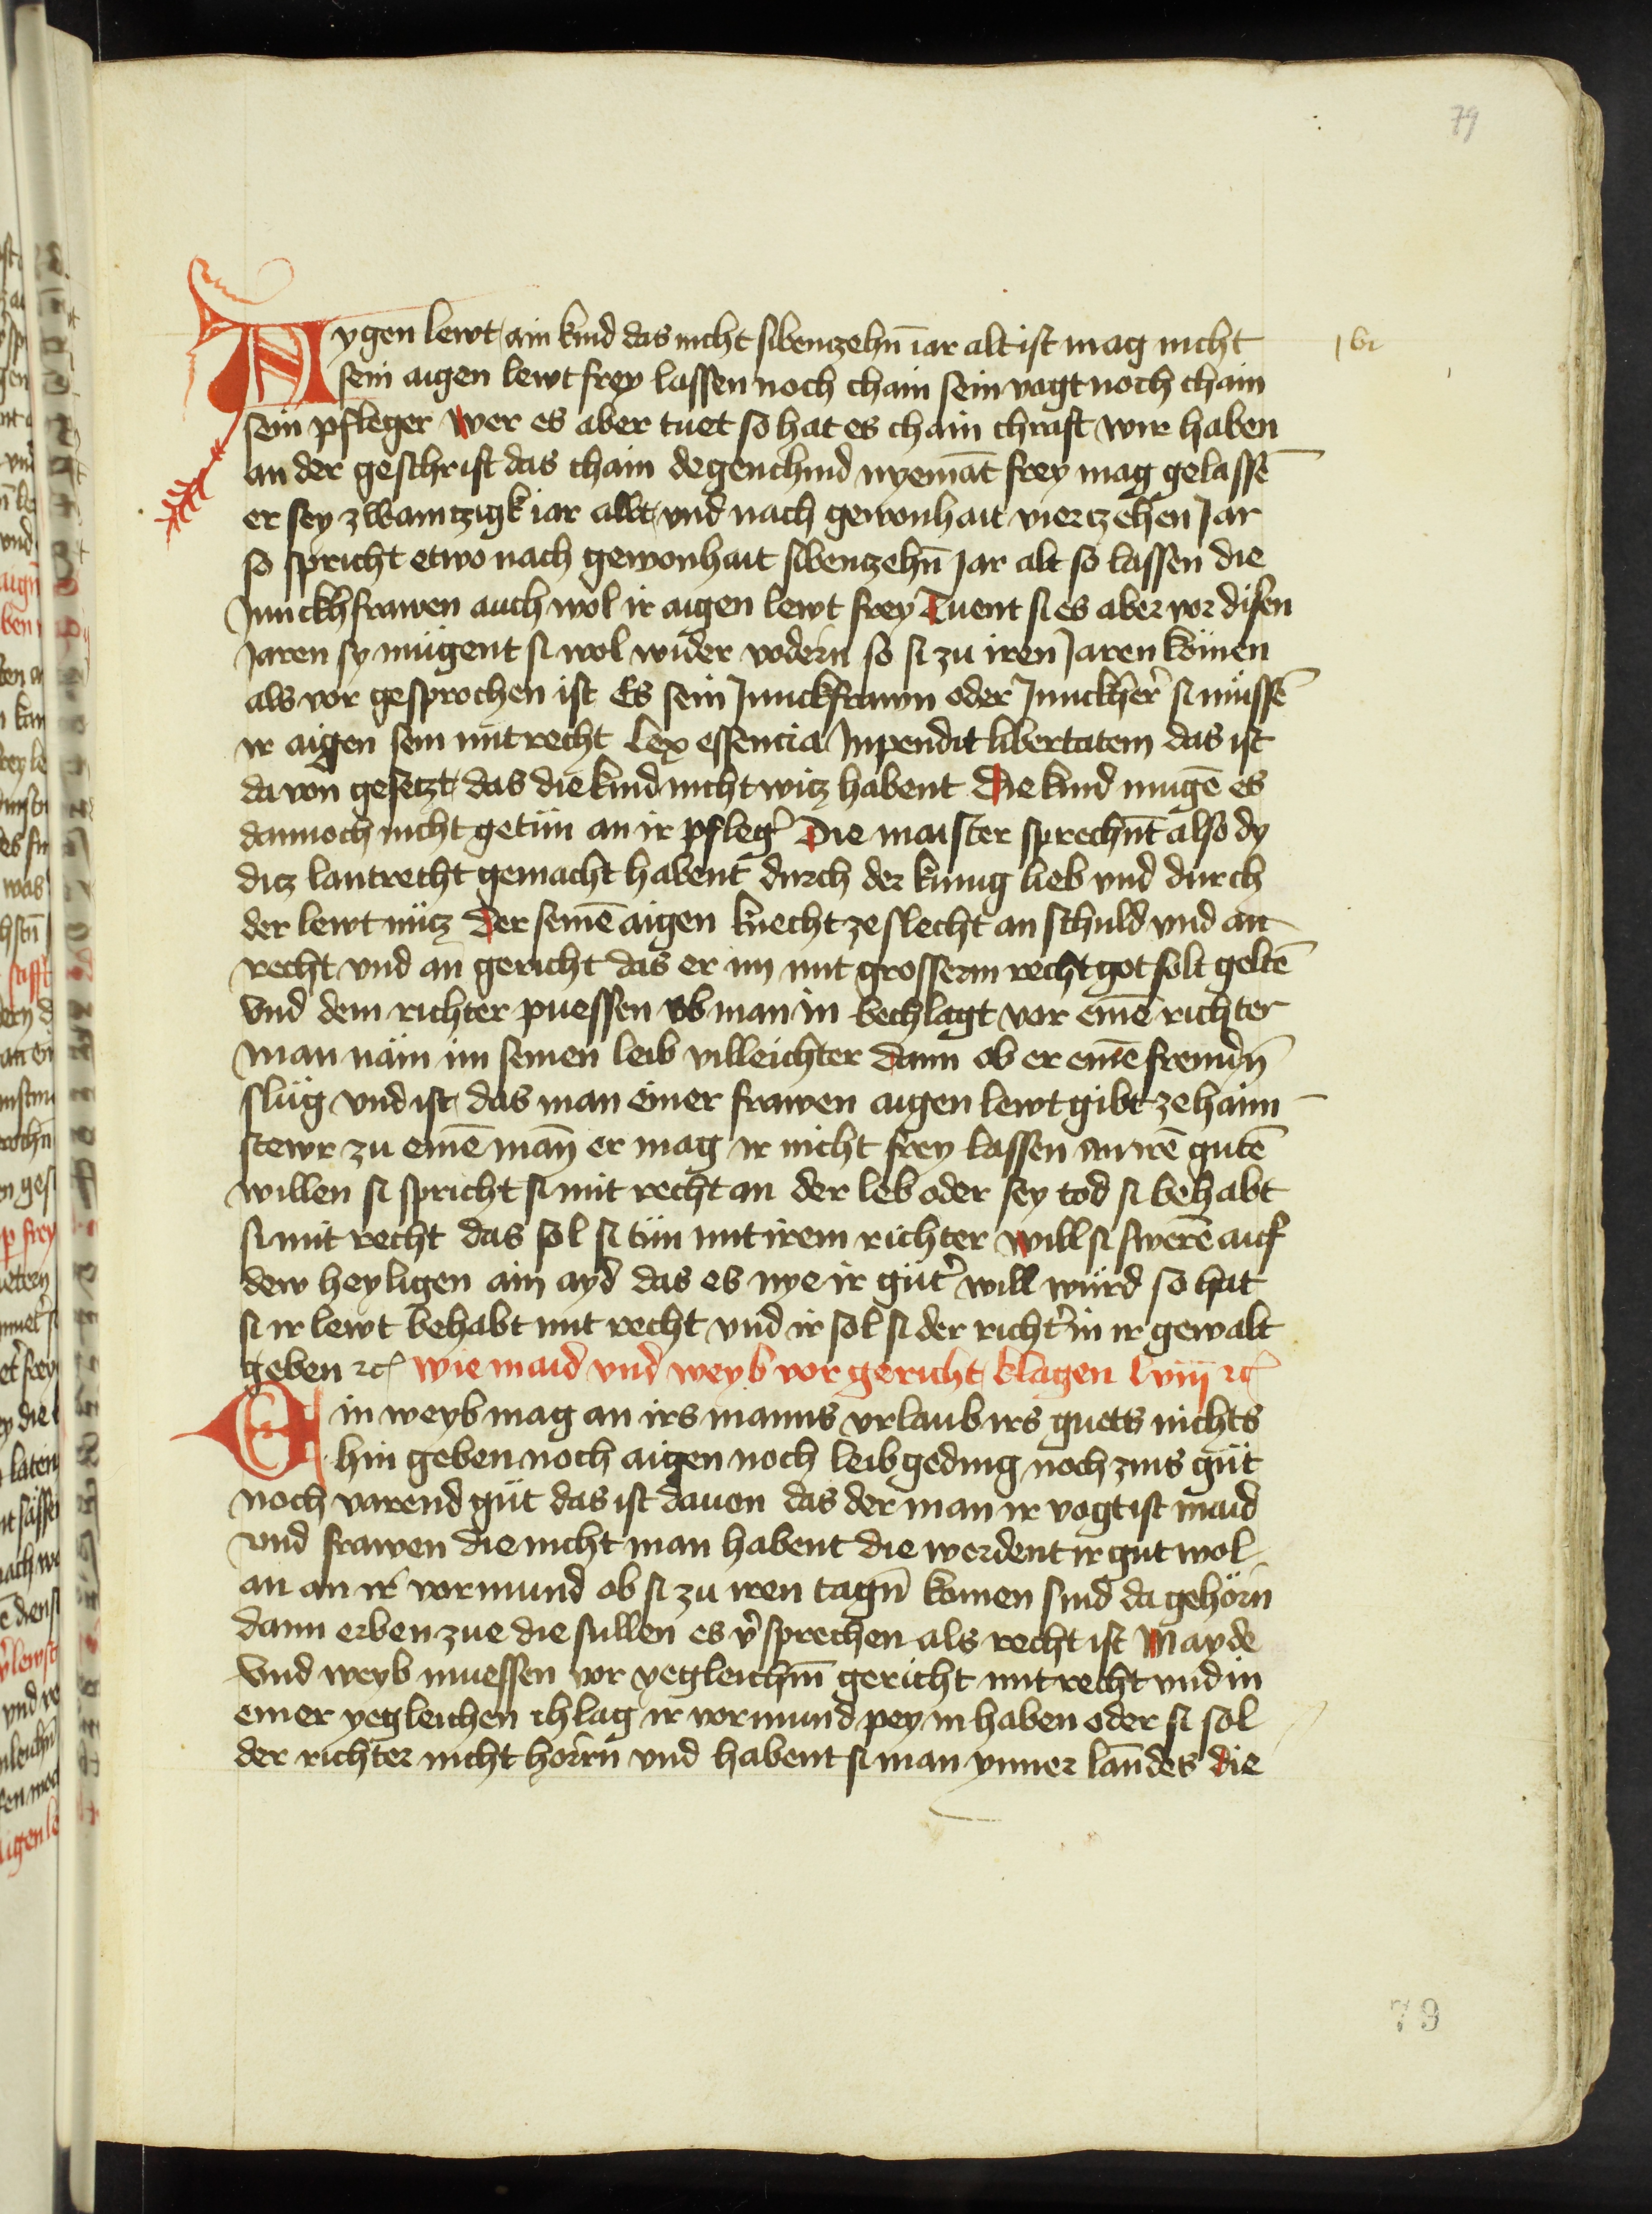 79
Aygen lewt ain kind das nicht sibenzehn̄ iar alt ist mag nicht
lvi
sein aigen lewt frey lassen noch chain sein vogt noch chain
sein pfleger wer es aber tuet so hat es chain chraft wir haben
an der geschrift das chain degenchind nyemāt frey mag gelassē
er sey zwaintzigk iar allt vnd nach gewonhait viertzehen Jar
so spricht etwo nach gewonhait sibenzehn̄ Jar alt so lassen die
Junckhfrawen auch wol ir aigen lewt frey Tuent si es aber vor disen
Jaren sy mügent si wol wider vodern so si zu iren Jaren kömen
als vor gesprochen ist Es sein Junckfrawn oder Junckherr si müssē
ir aigen sein mit recht Lex essencia Inpendit libertatem das ist
da von gesetzt das die kind nicht witz habent Die kind mugē es
dannoch nicht getün an ir pfleg' Die maister sprechn̄t also dy
ditz lantrecht gemacht habent durch der kunig lieb vnd durch
der lewt nütz Der seinē aigen knecht ze slecht an schuld vnd an
recht vnd an gericht das er im mit grosserm recht got solt geltē
Vnd dem richter puessen ob man in bechlagt vor einē richter
man näm im seinen leib villeichter dann ob er einē fremdn̄
slüg vnd ist das man einer frawen aigen lewt gibt ze haim
stewr zu einē man̄ er mag ir nicht frey lassen an irē gutē
willen si spricht si mit recht an der leb oder sey tod si behabt
si mit recht das sol si tün mit irem richter will si swerē auf
dew heyligen ain ayd das es nye ir güt' will würd so hat
si ir lewt behabt mit recht vnd ir sol si der richt' in ir gewalt
geben ꝛc̄ wie maid vnd weyb vor gericht klagen lviij ꝛc̄
Ein weyb mag an irs manns vrlaub irs guets nichts
hin geben noch aigen noch leibgeding noch zins güt
noch varend güt das ist dauon das der man ir vogt ist maid
vnd frawen die nicht man habent die werdent ir gut wol
an an ir vormund ob si zu iren tagn̄ komen sind da gehörn
dann erben zue die sullen es v'sprechen als recht ist Mayde
Vnd weyb muessen vor yegleichm̄ gericht mit recht vnd in
einer yegleichen chlag ir vormund pey in haben oder si sol
der richter nicht horrn vnd habent si man ynner lanndes die
79